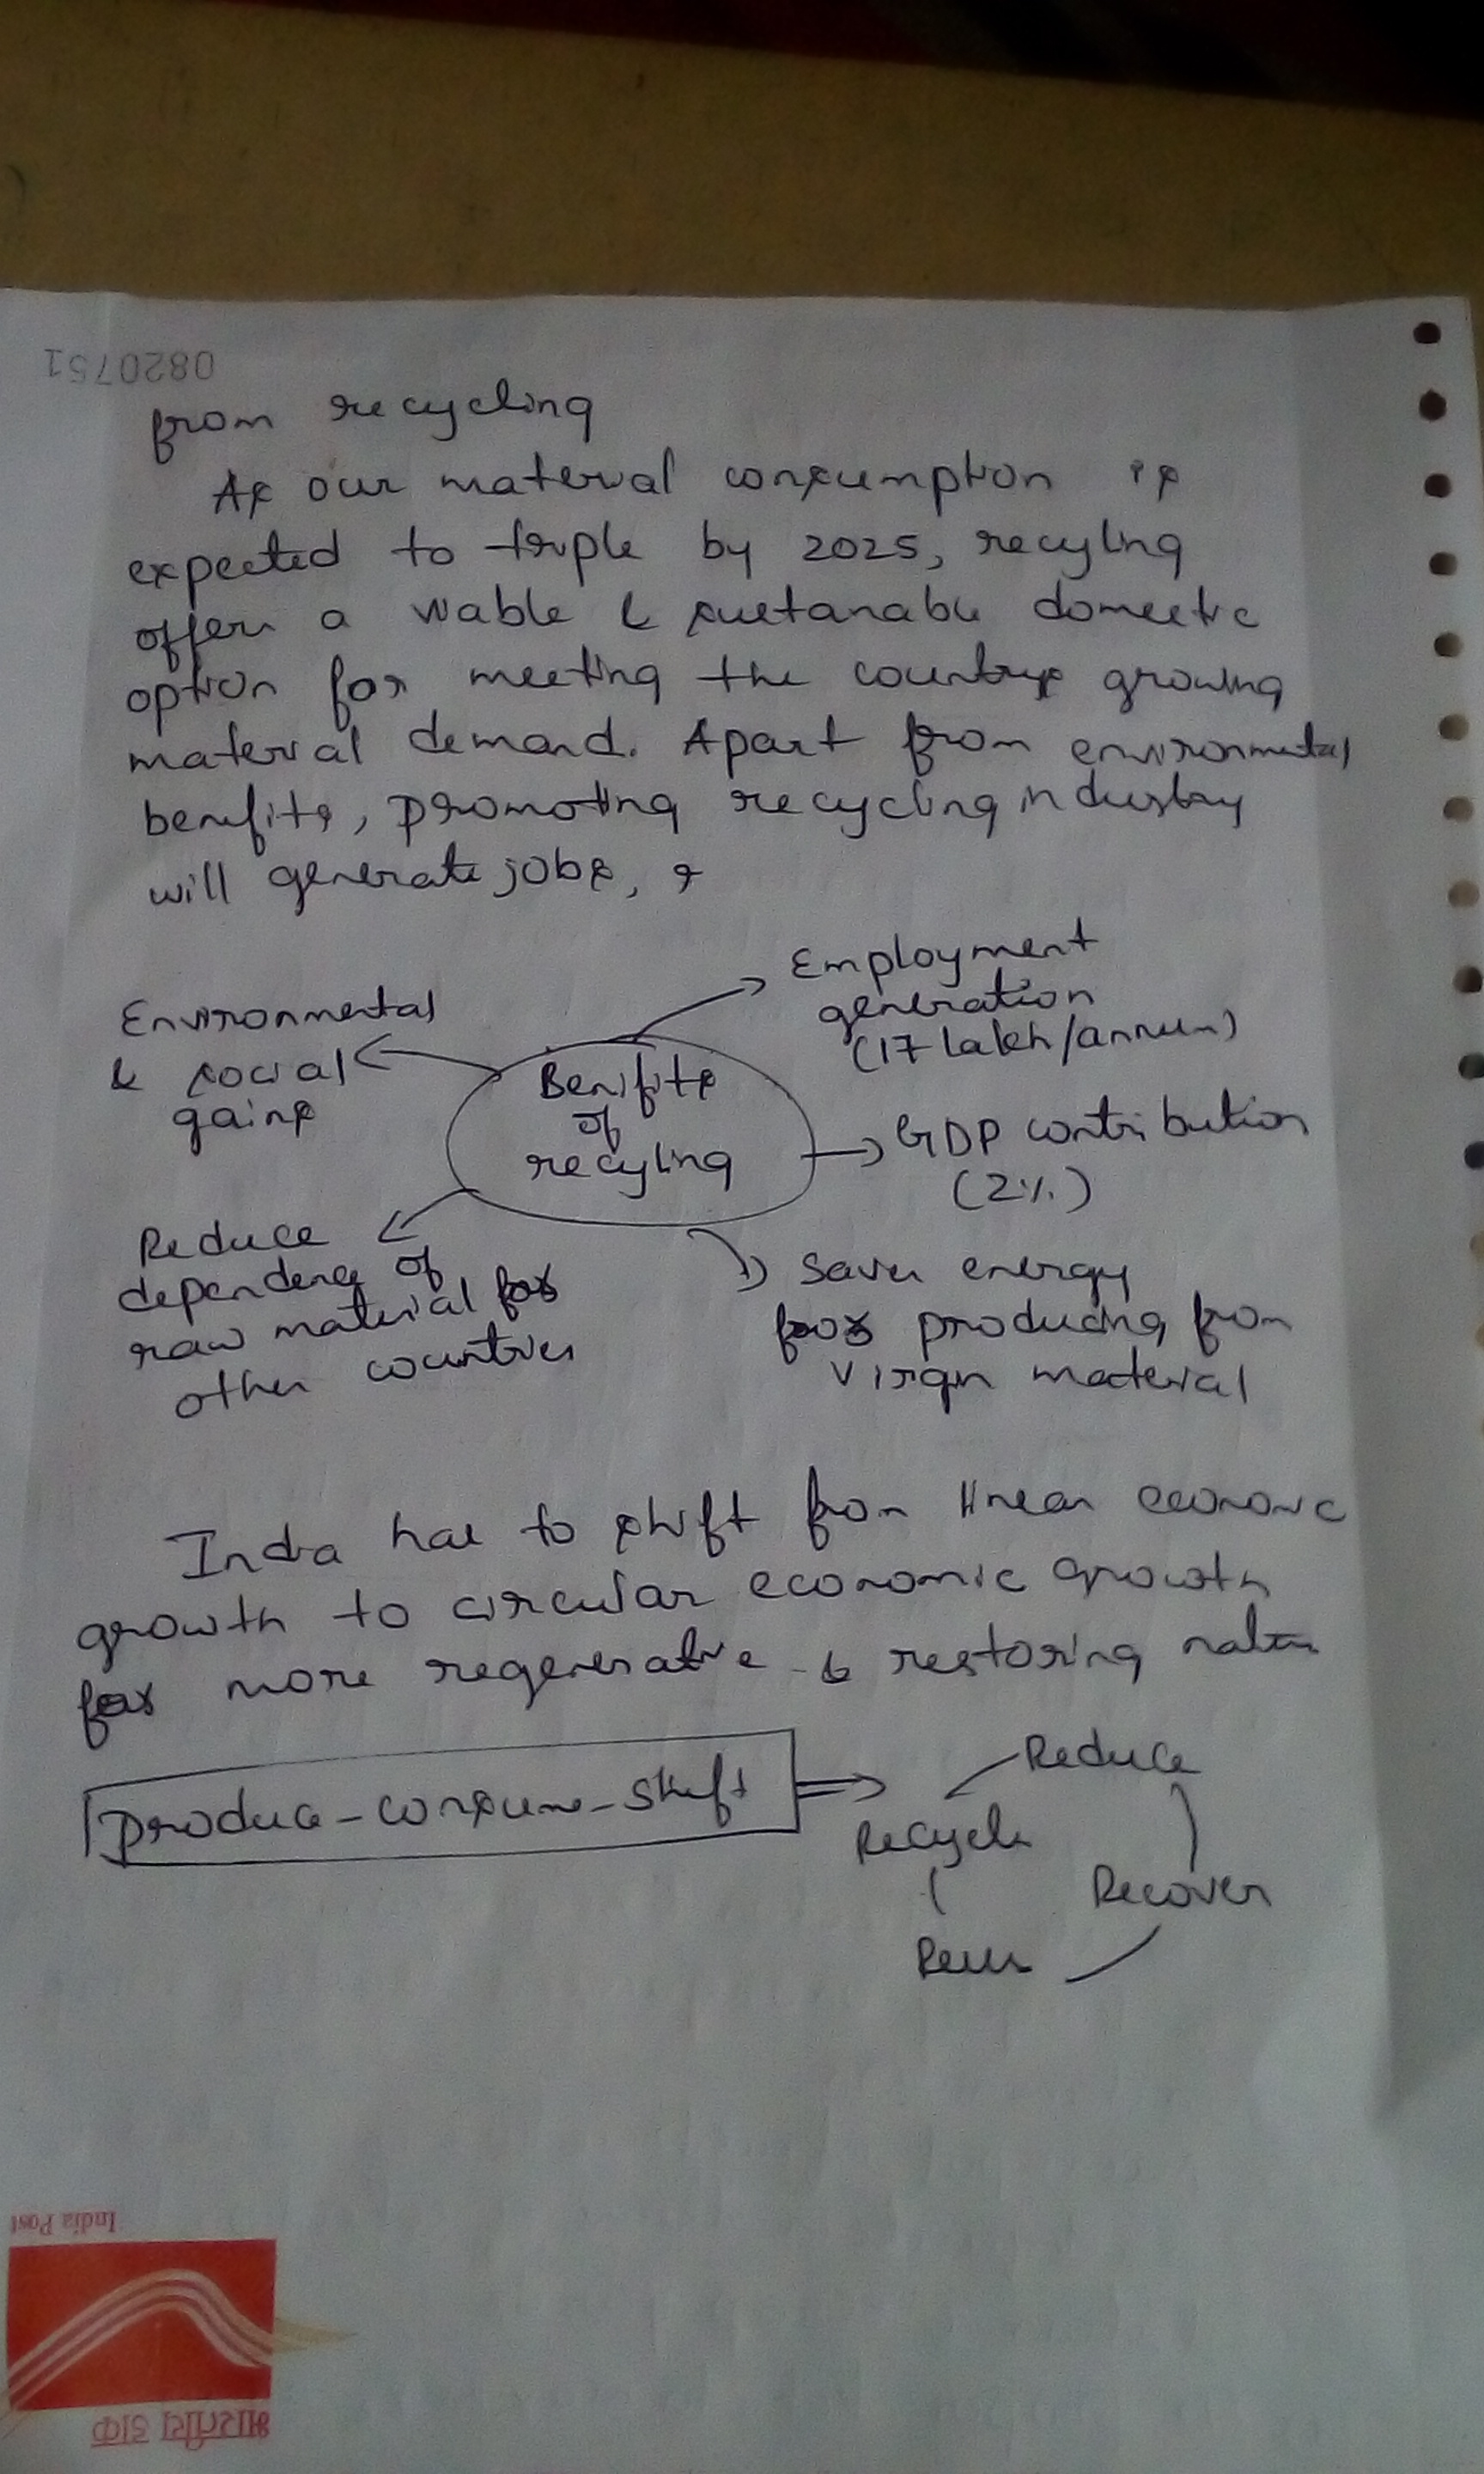 0820751
from recycling
As our material consumption is
expected to triple by 2025, recyling
offers a viable & sustanable domestic
option for meeting the countrys growing
material demand. Apart from environmental
benefits, promoting recycling industry
will generate jobs,
Employment
generation
(17 lakh/annum)
Environmental
& social
gains
Benifits
of
recyling
GDP contribution
(2%)
Reduce
dependence of
raw material for
other countries
Saves energy
for producing from
virgin material
India has to shift from linear economic
growth to circular economic growth
for more regenerative & restoring nature
Produce-consume-shift
Reduce
Recycle
Recover
Reuse
India Post
भारतीय डाक